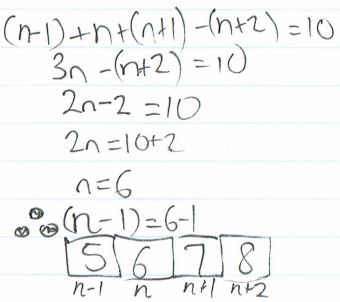 (n-1)+n+(n+1)-(n+2)=10
3n-(n+2)=10
2n-2=10
2n=10+2
n=6
∴(n-1)=6-1
5 6 7 8
n-1 n n+1 n+2